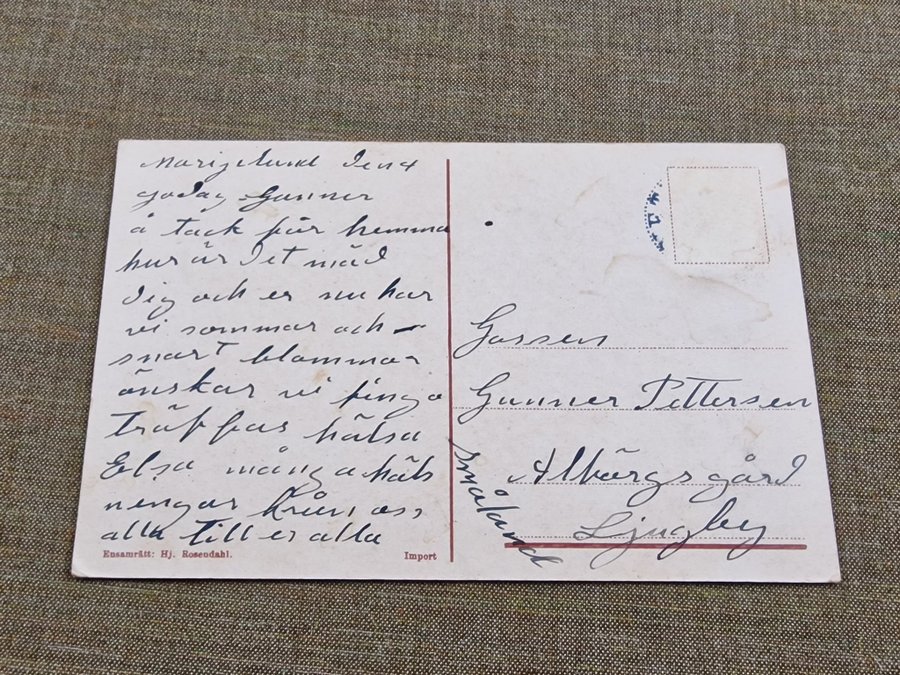 Marizelund den 4
goday Gunner
å tack för hemma
hur är det mäd
dig och er nu har
vi sommar och
snart blommar
önskar vi finga
träffas hälsa
Elsa många häls
nengar från oss
alla till er alla
Ensamrätt: Hj. Rosendahl.
Import
Gossen
Gunner Pettersen
Albärgs gård
Ljugby
Småland